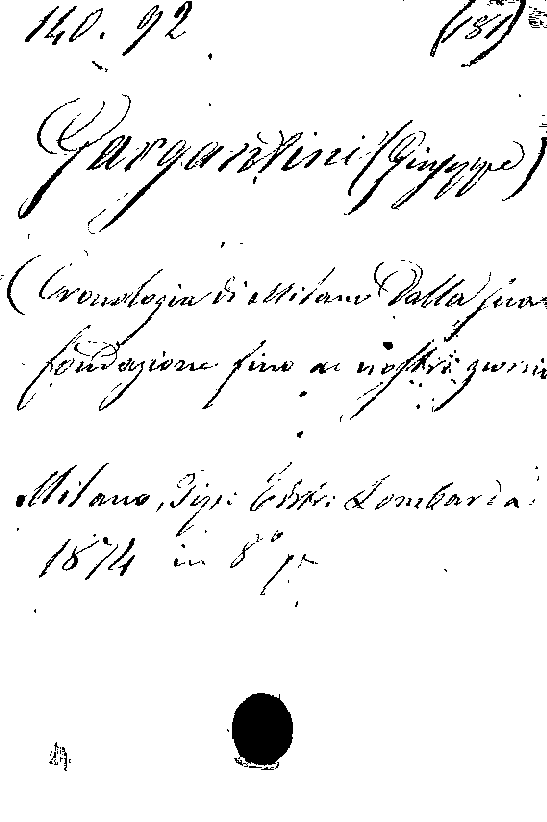 140. 92 (181)
Gargantini (Giuseppe)
Cronologia di Milano dalla sua
fondazione fino ai nostri giorni
Milano, Tip: Editr: Lombarda
1874 in 8°